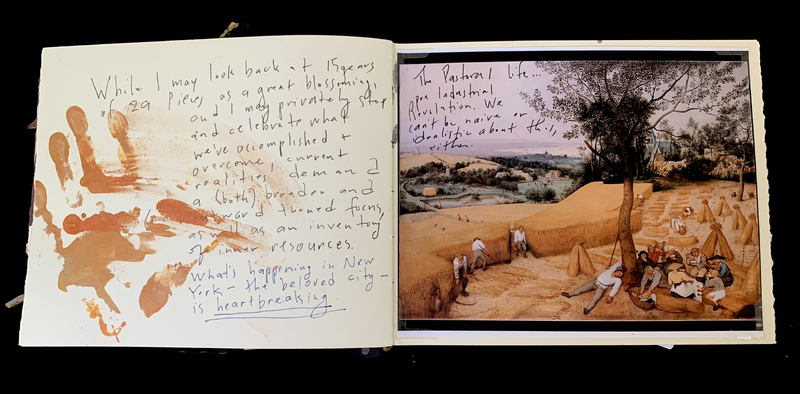 While I may look back at 15 years
of 29 Pieces as a great blossoming,
and I may privately stop
and celebrate what
we've accomplished +
overcome current
realities demand
a (both) broader and
inward turned focus,
as well as an inventory
of inner resources.
What's happening in New
York – the beloved city –
is heartbreaking.
The Pastoral life...
pre Industrial
Revolution. We
can't be naive or
idealistic about this,
either.